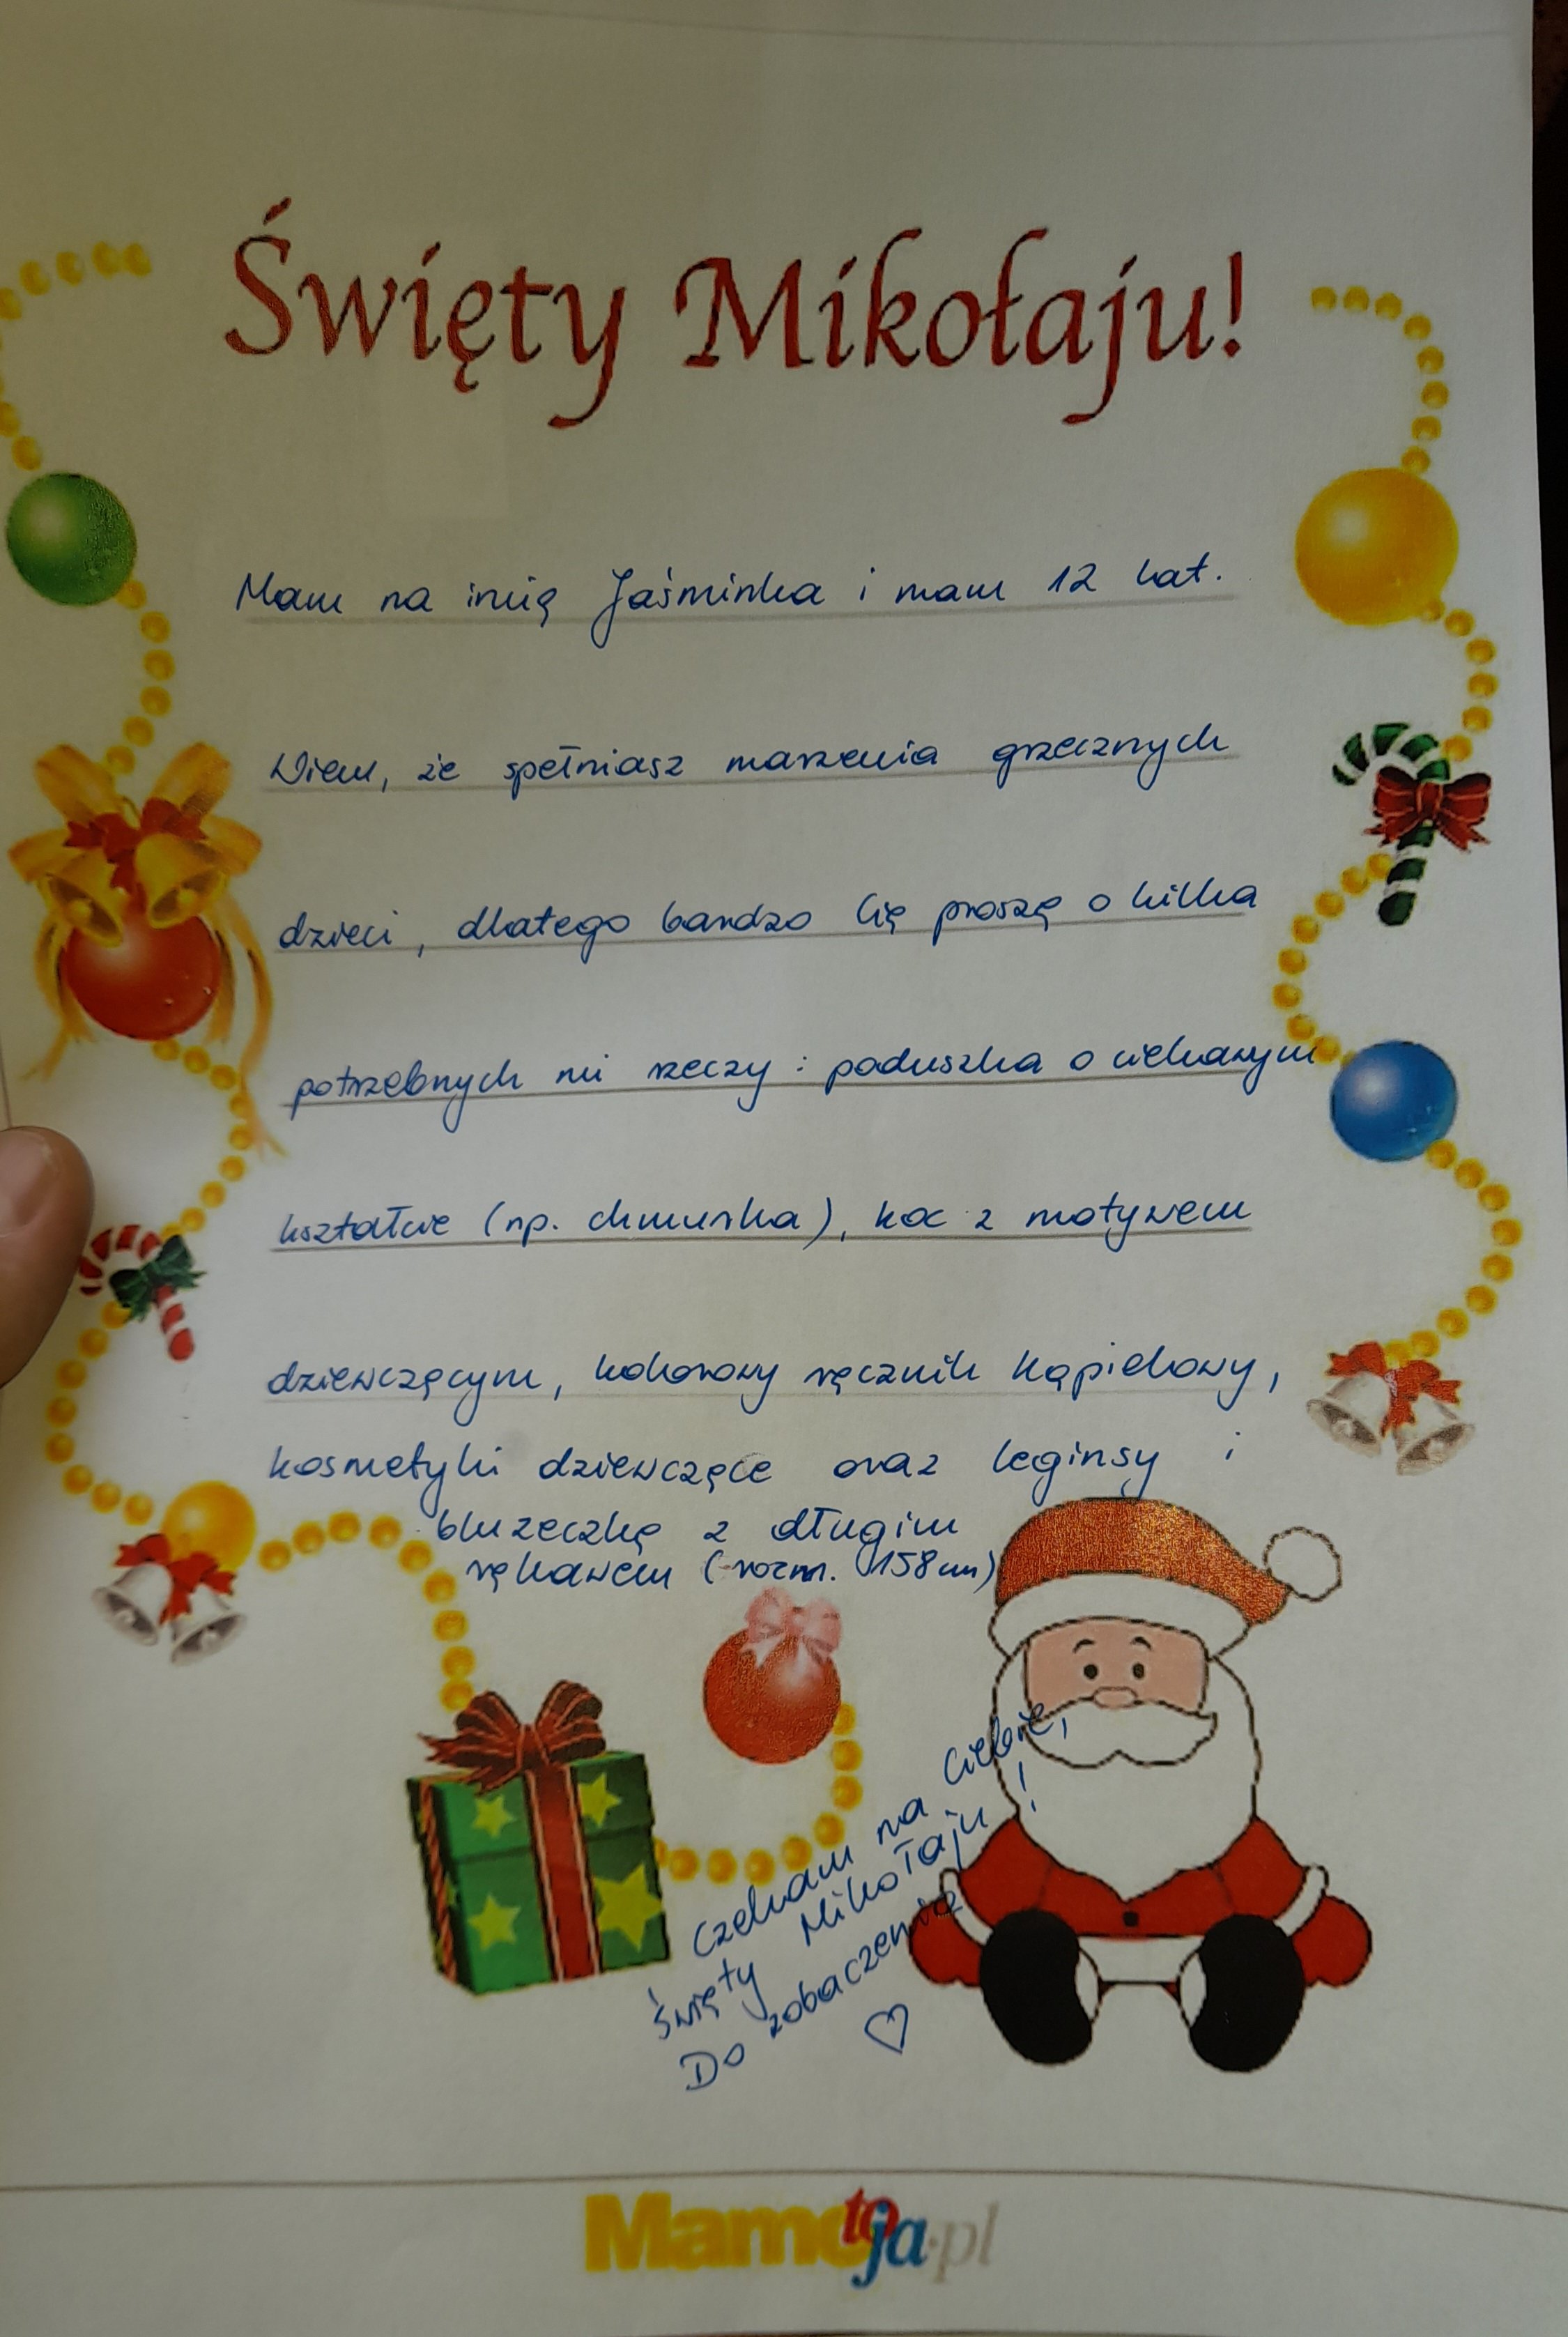 Święty Mikołaju!
Mam na imię Jaśminka i mam 12 lat.
Wiem, że spełniasz marzenia grzecznych
dzieci, dlatego bardzo Cię proszę o kilka
potrzebnych mi rzeczy: poduszka o ciekawym
kształcie (np. chmurka), koc z motywem
dziewczęcym, kolorowy ręcznik kąpielowy,
kosmetyki dziewczęce oraz leginsy i
bluzeczkę z długim
rękawem (rozm. 158cm)
Czekam na Ciebie,
Święty Mikołaju!
Do zobaczenia
♡
Mamotoja.pl